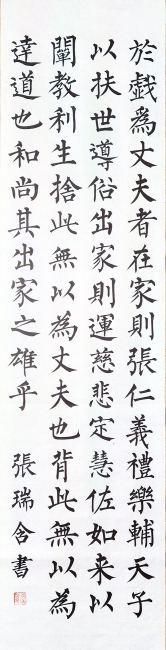 於戲為丈夫者在家則張仁義禮樂輔天子
以扶世導俗出家則運慈悲定慧佐如来以
闡教利生捨此無以為丈夫也背此無以為
達道也和尚其出家之雄乎 張瑞含書